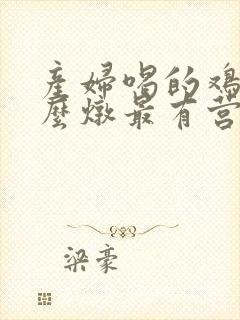 産婦喝的鸡
麼燉最有营
梁豪